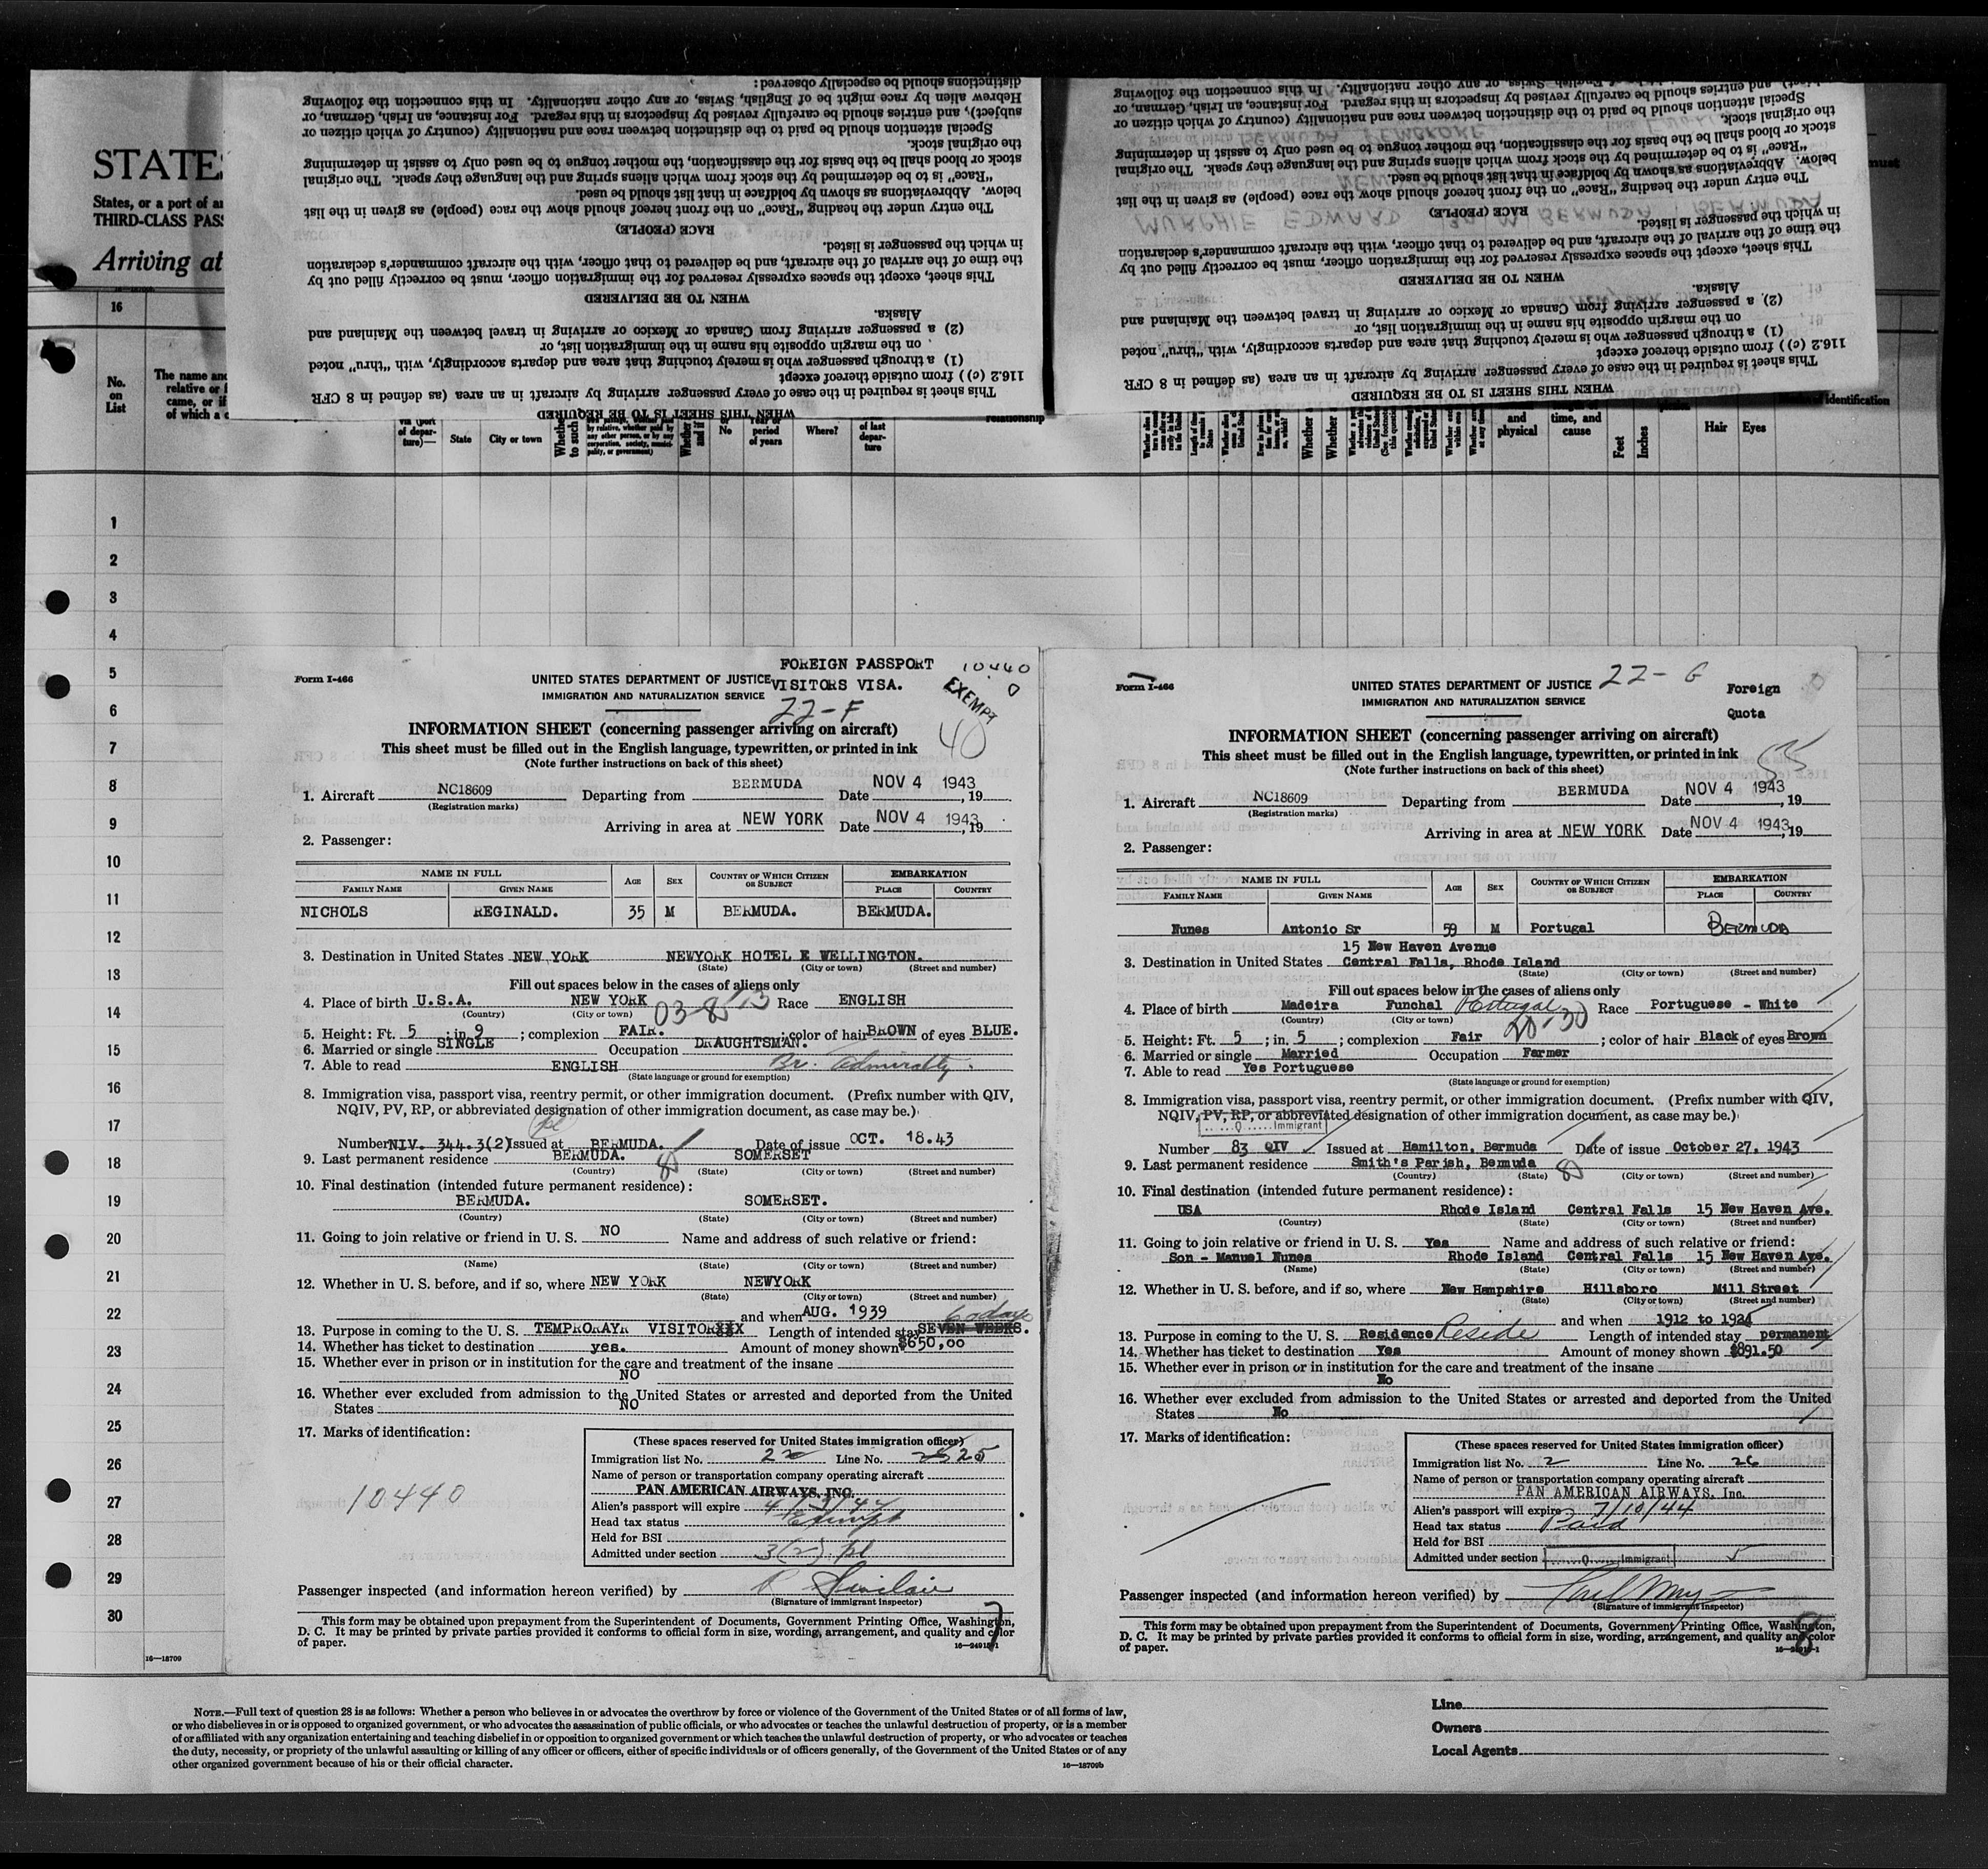 distinctions should be especially observed:
Hebrew alien by race might be of English, Swiss, or any other nationality. In this connection the following
subject), and entries should be carefully revised by inspectors in this regard. For instance, an Irish, German, or
Special attention should be paid to the distinction between race and nationality (country of which citizen or
the original stock.
stock or blood shall be the basis for the classification, the mother tongue to be used only to assist in determining
"Race" is to be determined by the stock from which aliens spring and the language they speak. The original
below. Abbreviations as shown by boldface in that list should be used.
The entry under the heading "Race" on the front hereof should show the race (people) as given in the list
RACE (PEOPLE)
in which the passenger is listed.
the time of the arrival of the aircraft, and be delivered to that officer, with the aircraft commander's declaration
This sheet, except the spaces expressly reserved for the immigration officer, must be correctly filled out by
WHEN TO BE DELIVERED
Alaska.
(2) a passenger arriving from Canada or Mexico or arriving in travel between the Mainland and
on the margin opposite his name in the immigration list, or
(1) a through passenger who is merely touching that area and departs accordingly, with "thru" noted
116.2 (c)) from outside thereof except
This sheet is required in the case of every passenger arriving by aircraft in an area (as defined in 8 CFR
WHEN THIS SHEET IS TO BE REQUIRED
and entries should be carefully revised by inspectors in this regard. For instance, an Irish, German, or
Special attention should be paid to the distinction between race and nationality (country of which citizen or
the original stock.
stock or blood shall be the basis for the classification, the mother tongue to be used only to assist in determining
"Race" is to be determined by the stock from which aliens spring and the language they speak. The original
below. Abbreviations as shown by boldface in that list should be used.
The entry under the heading "Race" on the front hereof should show the race (people) as given in the list
RACE (PEOPLE)
MURPHIE EDWARD
in which the passenger is listed.
the time of the arrival of the aircraft, and be delivered to that officer, with the aircraft commander's declaration
This sheet, except the spaces expressly reserved for the immigration officer, must be correctly filled out by
WHEN TO BE DELIVERED
Alaska.
(2) a passenger arriving from Canada or Mexico or arriving in travel between the Mainland and
on the margin opposite his name in the immigration list, or
(1) a through passenger who is merely touching that area and departs accordingly, with "thru" noted
116.2 (c)) from outside thereof except
This sheet is required in the case of every passenger arriving by aircraft in an area (as defined in 8 CFR
WHEN THIS SHEET IS TO BE REQUIRED
STATES
States, or a port of
THIRD-CLASS PASS
Arriving at
16
No. on List
The name and
relative or
came, or if
of which a
relationship
via (port of departure)—
State
City or town
No
Year or period of years
Where?
of last departure
and physical
time, and cause
Feet
Inches
Hair
Eyes
identification
1
2
3
4
5
6
7
8
9
10
11
12
13
14
15
16
17
18
19
20
21
22
23
24
25
26
27
28
29
30
16—18709
FOREIGN PASSPORT
VISITORS VISA.
10440
0
EXEMPT
Form I-466
UNITED STATES DEPARTMENT OF JUSTICE
IMMIGRATION AND NATURALIZATION SERVICE
22-F
40
INFORMATION SHEET (concerning passenger arriving on aircraft)
This sheet must be filled out in the English language, typewritten, or printed in ink
(Note further instructions on back of this sheet)
1. Aircraft NC18609 Departing from BERMUDA Date NOV 4 1943, 19
(Registration marks)
Arriving in area at NEW YORK Date NOV 4 1943, 19
2. Passenger:
NAME IN FULL AGE SEX COUNTRY OF WHICH CITIZEN OR SUBJECT EMBARKATION
FAMILY NAME GIVEN NAME PLACE COUNTRY
NICHOLS REGINALD. 35 M BERMUDA. BERMUDA.
3. Destination in United States NEW YORK NEWYORK HOTEL E WELLINGTON.
(State) (City or town) (Street and number)
Fill out spaces below in the cases of aliens only
4. Place of birth U.S.A. NEW YORK Race ENGLISH
(Country) (City or town)
5. Height: Ft. 5; in. 9; complexion FAIR.; color of hair BROWN of eyes BLUE.
6. Married or single SINGLE Occupation DRAUGHTSMAN.
7. Able to read ENGLISH Br. Admiralty.
(State language or ground for exemption)
8. Immigration visa, passport visa, reentry permit, or other immigration document. (Prefix number with QIV,
NQIV, PV, RP, or abbreviated designation of other immigration document, as case may be.)
Number NIV. 344.3(2) Issued at BERMUDA. Date of issue OCT. 18.43
9. Last permanent residence BERMUDA. SOMERSET
(Country) (State) (City or town) (Street and number)
10. Final destination (intended future permanent residence):
BERMUDA. SOMERSET.
(Country) (State) (City or town) (Street and number)
11. Going to join relative or friend in U. S. NO Name and address of such relative or friend:
(Name) (State) (City or town) (Street and number)
12. Whether in U. S. before, and if so, where NEW YORK NEWYORK
(State) (City or town) (Street and number)
and when AUG. 1939 60 days
13. Purpose in coming to the U. S. TEMPRORAYR VISITORXXX Length of intended stay SEVEN WEEKS.
14. Whether has ticket to destination yes. Amount of money shown $650,00
15. Whether ever in prison or in institution for the care and treatment of the insane
NO
16. Whether ever excluded from admission to the United States or arrested and deported from the United
States NO
17. Marks of identification:
10440
(These spaces reserved for United States immigration officer)
Immigration list No. Line No. 25
Name of person or transportation company operating aircraft
PAN AMERICAN AIRWAYS, INC.
Alien's passport will expire 4/3/44
Head tax status Exempt
Held for BSI
Admitted under section 3(2) pl
Passenger inspected (and information hereon verified) by R Sinclair
(Signature of immigrant inspector)
This form may be obtained upon prepayment from the Superintendent of Documents, Government Printing Office, Washington,
D. C. It may be printed by private parties provided it conforms to official form in size, wording, arrangement, and quality and color
of paper.
7
Form I-466
UNITED STATES DEPARTMENT OF JUSTICE
IMMIGRATION AND NATURALIZATION SERVICE
22-G
Foreign
Quota
55
INFORMATION SHEET (concerning passenger arriving on aircraft)
This sheet must be filled out in the English language, typewritten, or printed in ink
(Note further instructions on back of this sheet)
1. Aircraft NC18609 Departing from BERMUDA Date NOV 4 1943, 19
(Registration marks)
Arriving in area at NEW YORK Date NOV 4 1943, 19
2. Passenger:
NAME IN FULL AGE SEX COUNTRY OF WHICH CITIZEN OR SUBJECT EMBARKATION
FAMILY NAME GIVEN NAME PLACE COUNTRY
Nunes Antonio Sr 59 M Portugal BERMUDA
15 New Haven Avenue
3. Destination in United States Central Falls, Rhode Island
(State) (City or town) (Street and number)
Fill out spaces below in the cases of aliens only
4. Place of birth Madeira Funchal Portugal Race Portuguese - White
(Country) (City or town) 20-30
5. Height: Ft. 5; in. 5; complexion Fair; color of hair Black of eyes Brown
6. Married or single Married Occupation Farmer
7. Able to read Yes Portuguese
(State language or ground for exemption)
8. Immigration visa, passport visa, reentry permit, or other immigration document. (Prefix number with QIV,
NQIV, PV, RP, or abbreviated designation of other immigration document, as case may be.)
Q Immigrant
Number 83 QIV Issued at Hamilton, Bermuda Date of issue October 27, 1943
9. Last permanent residence Smith's Parish, Bermuda
(Country) (State) (City or town) (Street and number)
10. Final destination (intended future permanent residence):
USA Rhode Island Central Falls 15 New Haven Ave.
(Country) (State) (City or town) (Street and number)
11. Going to join relative or friend in U. S. Yes Name and address of such relative or friend:
Son - Manuel Nunes Rhode Island Central Falls 15 New Haven Ave.
(Name) (State) (City or town) (Street and number)
12. Whether in U. S. before, and if so, where New Hampshire Hillsboro Mill Street
(State) (City or town) (Street and number)
and when 1912 to 1924
13. Purpose in coming to the U. S. Residence Reside Length of intended stay permanent
14. Whether has ticket to destination Yes Amount of money shown $891.50
15. Whether ever in prison or in institution for the care and treatment of the insane
No
16. Whether ever excluded from admission to the United States or arrested and deported from the United
States No
17. Marks of identification:
(These spaces reserved for United States immigration officer)
Immigration list No. 2 Line No. 26
Name of person or transportation company operating aircraft
PAN AMERICAN AIRWAYS, Inc.
Alien's passport will expire 7/10/44
Head tax status Paid
Held for BSI
Admitted under section Q Immigrant 5
Passenger inspected (and information hereon verified) by
(Signature of immigrant inspector)
This form may be obtained upon prepayment from the Superintendent of Documents, Government Printing Office, Washington,
D. C. It may be printed by private parties provided it conforms to official form in size, wording, arrangement, and quality and color
of paper.
8
NOTE.—Full text of question 28 is as follows: Whether a person who believes in or advocates the overthrow by force or violence of the Government of the United States or of all forms of law,
or who disbelieves in or is opposed to organized government, or who advocates the assassination of public officials, or who advocates or teaches the unlawful destruction of property, or is a member
of or affiliated with any organization entertaining and teaching disbelief in or opposition to organized government or which teaches the unlawful destruction of property, or who advocates or teaches
the duty, necessity, or propriety of the unlawful assaulting or killing of any officer or officers, either of specific individuals or of officers generally, of the Government of the United States or of any
other organized government because of his or their official character.
16—18709b
Line
Owners
Local Agents